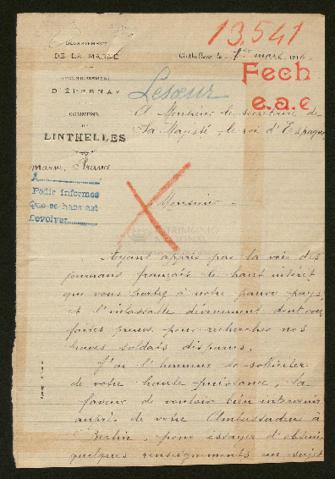 13.541
DÉPARTEMENT
DE LA MARNE
ARRONDISSEMENT
D'ÉPERNAY
COMMUNE
DE
LINTHELLES
Marne, France
le 1er mars 1916
Fech
e.a.c
Lesœur
A Monsieur le secrétaire de
Sa Majesté le roi d'Espagne
Pedir informes
que se haga est
devolver
Monsieur
Ayant appris par la voie des
journaux français le haut intérêt
que vous portez à notre pauvre pays
et l'inlassable dévouement dont vous
faites preuve pour rechercher nos
braves soldats disparus.
J'ai l'honneur de solliciter
de votre haute puissance, la
faveur de vouloir bien intervenir
auprès de votre Ambassadeur à
Berlin, pour essayer d'obtenir
quelques renseignements au sujet